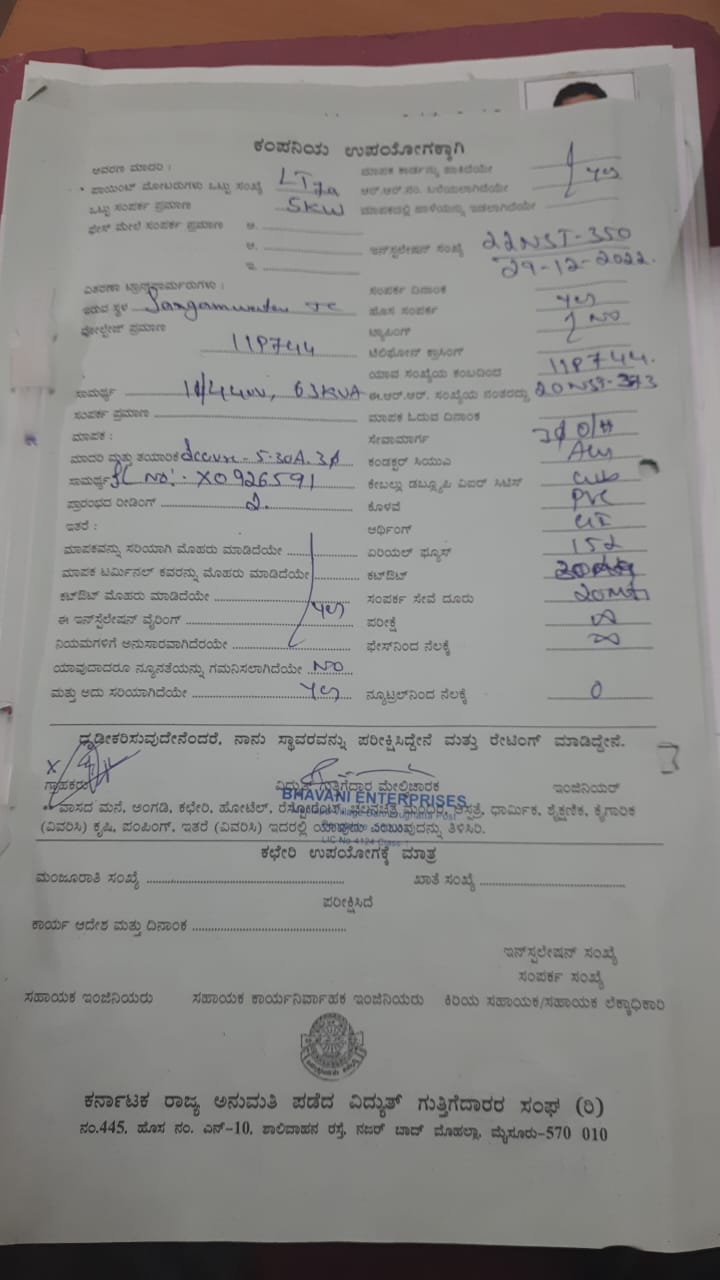 ಕಂಪನಿಯ ಉಪಯೋಗಕ್ಕಾಗಿ
ಆವರಣ ಮಾದರಿ : ಮಾಪಕ ಕಾರ್ಡನ್ನು ಹಾಕಿದೆಯೇ
• ಪಾಯಿಂಟ್ ಮೋಟರುಗಳು ಒಟ್ಟು ಸಂಖ್ಯೆ LT7a ಆರ್.ಆರ್.ನಂ. ಬರೆಯಲಾಗಿದೆಯೇ yes
ಒಟ್ಟು ಸಂಪರ್ಕ ಪ್ರಮಾಣ 5KW ಮಾಪಕದಲ್ಲಿ ಹಾಳೆಯನ್ನು ಇಡಲಾಗಿದೆಯೇ
ಫೇಸ್ ಮೇಲೆ ಸಂಪರ್ಕ ಪ್ರಮಾಣ ಅ.
ಆ. ಇನ್‌ಸ್ಪಲೇಷನ್ ಸಂಖ್ಯೆ 22NST-350
ಇ. 29-12-2022.
ವಿತರಣಾ ಟ್ರಾನ್ಸ್‌ಫಾರ್ಮರುಗಳು : ಸಂಪರ್ಕ ದಿನಾಂಕ
ಇರುವ ಸ್ಥಳ TC ಹೊಸ ಸಂಪರ್ಕ yes
ವೋಲ್ಟೇಜ್ ಪ್ರಮಾಣ ಟ್ಯಾಪಿಂಗ್ NO
11P744 ಟೆಲಿಫೋನ್ ಕ್ರಾಸಿಂಗ್
ಯಾವ ಸಂಖ್ಯೆಯ ಕಂಬದಿಂದ 11P744.
ಸಾಮರ್ಥ್ಯ 63KVA ಈ.ಆರ್.ಆರ್. ಸಂಖ್ಯೆಯ ನಂತರದ್ದು 20NST-373
ಸಂಪರ್ಕ ಪ್ರಮಾಣ ಮಾಪಕ ಓದುವ ದಿನಾಂಕ
ಮಾಪಕ : ಸೇವಾಮಾರ್ಗ 3φ O/H
ಮಾದರಿ ಮತ್ತು ತಯಾರಿಕೆ 5-30A. 3φ ಕಂಡಕ್ಟರ್ ಸಿಯುಎ
ಸಾಮರ್ಥ್ಯ SL No:- X0926591 ಕೇಬಲ್ಲು ಡಬ್ಲ್ಯೂಪಿ ವಿಐರ್ ಸಿಟಿಸ್
ಪ್ರಾರಂಭದ ರೀಡಿಂಗ್ 2. ಕೊಳವೆ PVC
ಇತರೆ : ಆರ್ಥಿಂಗ್ GI
ಮಾಪಕವನ್ನು ಸರಿಯಾಗಿ ಮೊಹರು ಮಾಡಿದೆಯೇ ಏರಿಯಲ್ ಫ್ಯೂಸ್
ಮಾಪಕ ಟರ್ಮಿನಲ್ ಕವರನ್ನು ಮೊಹರು ಮಾಡಿದೆಯೇ ಕಟ್‌ಔಟ್
ಕಟ್‌ಔಟ್ ಮೊಹರು ಮಾಡಿದೆಯೇ ಸಂಪರ್ಕ ಸೇವೆ ದೂರು
ಈ ಇನ್‌ಸ್ಪೆಲೇಷನ್ ವೈರಿಂಗ್ yes ಪರೀಕ್ಷೆ ∞
ನಿಯಮಗಳಿಗೆ ಅನುಸಾರವಾಗಿದೆರಯೇ ಫೇಸ್‌ನಿಂದ ನೆಲಕ್ಕೆ ∞
ಯಾವುದಾದರೂ ನ್ಯೂನತೆಯನ್ನು ಗಮನಿಸಲಾಗಿದೆಯೇ NO
ಮತ್ತು ಅದು ಸರಿಯಾಗಿದೆಯೇ Yes ನ್ಯೂಟ್ರಲ್‌ನಿಂದ ನೆಲಕ್ಕೆ 0
ದೃಢೀಕರಿಸುವುದೇನೆಂದರೆ, ನಾನು ಸ್ಥಾವರವನ್ನು ಪರೀಕ್ಷಿಸಿದ್ದೇನೆ ಮತ್ತು ರೇಟಿಂಗ್ ಮಾಡಿದ್ದೇನೆ.
X
ಗ್ರಾಹಕರು ವಿದ್ಯುತ್ ಗುತ್ತಿಗೆದಾರ ಮೇಲ್ವಿಚಾರಕ ಇಂಜಿನಿಯರ್
BHAVANI ENTERPRISES
** ವಾಸದ ಮನೆ, ಅಂಗಡಿ, ಕಛೇರಿ, ಹೋಟೆಲ್, ರೆಸ್ಟೋರೆಂಟ್, ಚಲನಚಿತ್ರ ಮಂದಿರ, ಆಸ್ಪತ್ರೆ, ಧಾರ್ಮಿಕ, ಶೈಕ್ಷಣಿಕ, ಕೈಗಾರಿಕ
(ವಿವರಿಸಿ) ಕೃಷಿ, ಪಂಪಿಂಗ್, ಇತರೆ (ವಿವರಿಸಿ) ಇದರಲ್ಲಿ ಯಾವುದು ಎಂಬುವುದನ್ನು ತಿಳಿಸಿರಿ.
LIC No 4124
ಕಛೇರಿ ಉಪಯೋಗಕ್ಕೆ ಮಾತ್ರ
ಮಂಜೂರಾತಿ ಸಂಖ್ಯೆ ಖಾತೆ ಸಂಖ್ಯೆ
ಪರೀಕ್ಷಿಸಿದೆ
ಕಾರ್ಯ ಆದೇಶ ಮತ್ತು ದಿನಾಂಕ
ಇನ್‌ಸ್ಪಲೇಷನ್ ಸಂಖ್ಯೆ
ಸಂಪರ್ಕ ಸಂಖ್ಯೆ
ಸಹಾಯಕ ಇಂಜಿನಿಯರು ಸಹಾಯಕ ಕಾರ್ಯನಿರ್ವಾಹಕ ಇಂಜಿನಿಯರು ಕಿರಿಯ ಸಹಾಯಕ/ಸಹಾಯಕ ಲೆಕ್ಕಾಧಿಕಾರಿ
ಕರ್ನಾಟಕ ರಾಜ್ಯ ಅನುಮತಿ ಪಡೆದ ವಿದ್ಯುತ್ ಗುತ್ತಿಗೆದಾರರ ಸಂಘ (ರಿ)
ನಂ.445, ಹೊಸ ನಂ. ಎನ್-10, ಶಾಲಿವಾಹನ ರಸ್ತೆ, ನಜರ್ ಬಾದ್ ಮೊಹಲ್ಲಾ, ಮೈಸೂರು-570 010